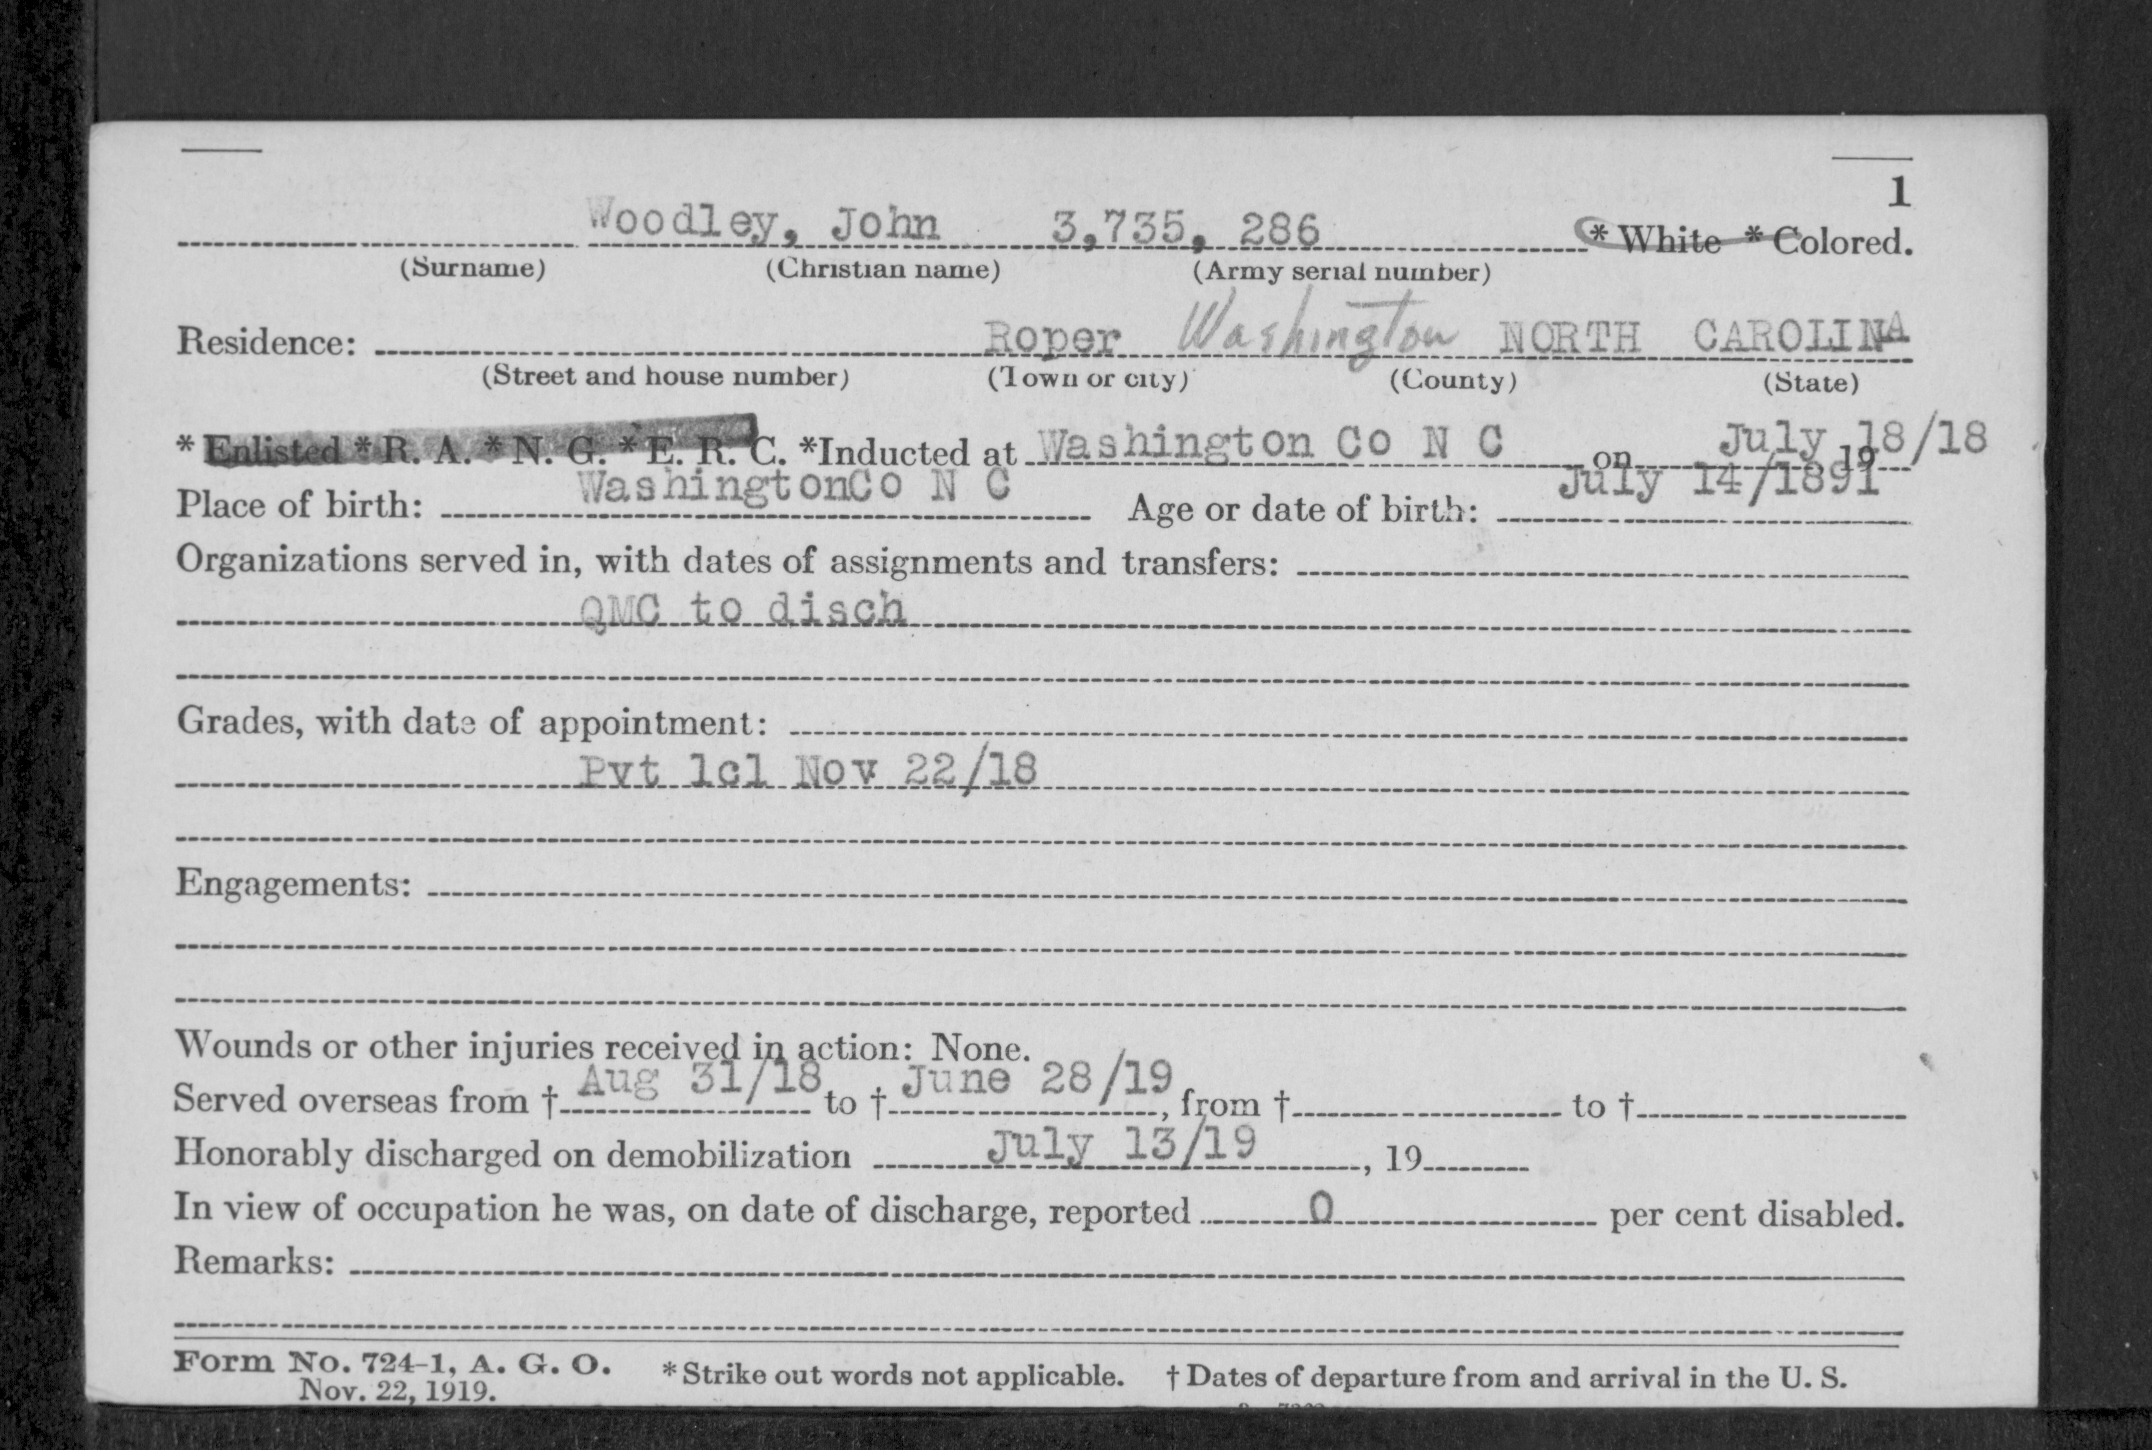 1
Woodley, John 3,735, 286 * White * Colored.
(Surname) (Christian name) (Army serial number)
Residence: Roper Washington NORTH CAROLINA
(Street and house number) (Town or city) (County) (State)
* Enlisted * R. A. * N. G. * E. R. C. *Inducted at Washington Co N C on July 18/18 19
Place of birth: WashingtonCo N C Age or date of birth: July 14/1891
Organizations served in, with dates of assignments and transfers:
QMC to disch
Grades, with date of appointment:
Pvt 1cl Nov 22/18
Engagements:
Wounds or other injuries received in action: None.
Served overseas from † Aug 31/18 to † June 28/19, from † to †
Honorably discharged on demobilization July 13/19, 19
In view of occupation he was, on date of discharge, reported 0 per cent disabled.
Remarks:
Form No. 724-1, A. G. O. * Strike out words not applicable. † Dates of departure from and arrival in the U. S.
Nov. 22, 1919.